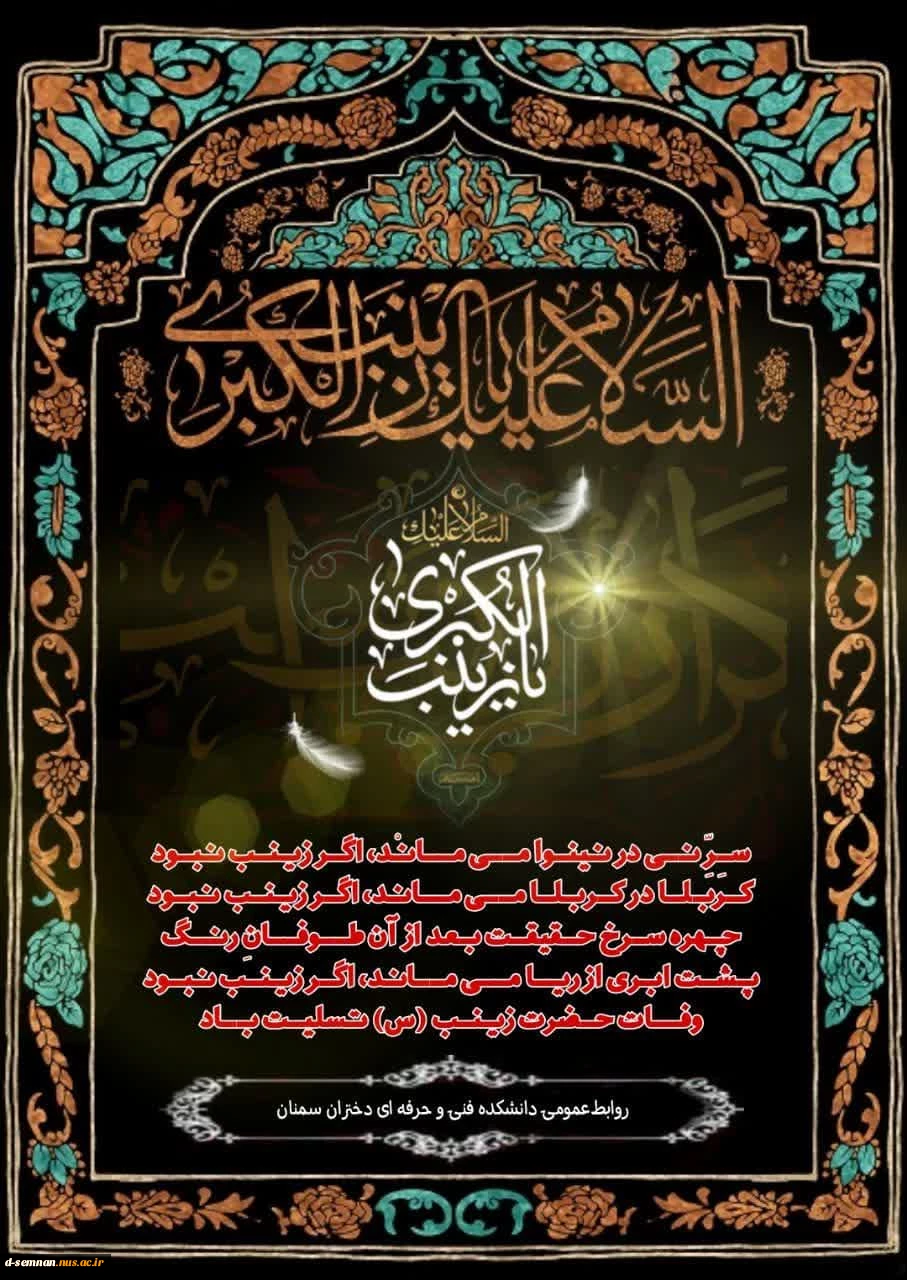 السَّلَامُ عَلَيْكِ يَا زَيْنَبَ الْكُبْرَىٰ
السلام عليك
يا زينب الكبرى
سرِّ نی در نینوا می ماند، اگر زینب نبود
کربلا در کربلا می ماند، اگر زینب نبود
چهره سرخ حقیقت بعد از آن طوفانِ رنگ
پشت ابری از ریا می ماند، اگر زینب نبود
وفات حضرت زینب (س) تسلیت باد
روابط عمومی دانشکده فنی و حرفه ای دختران سمنان
d-semnan.nus.ac.ir